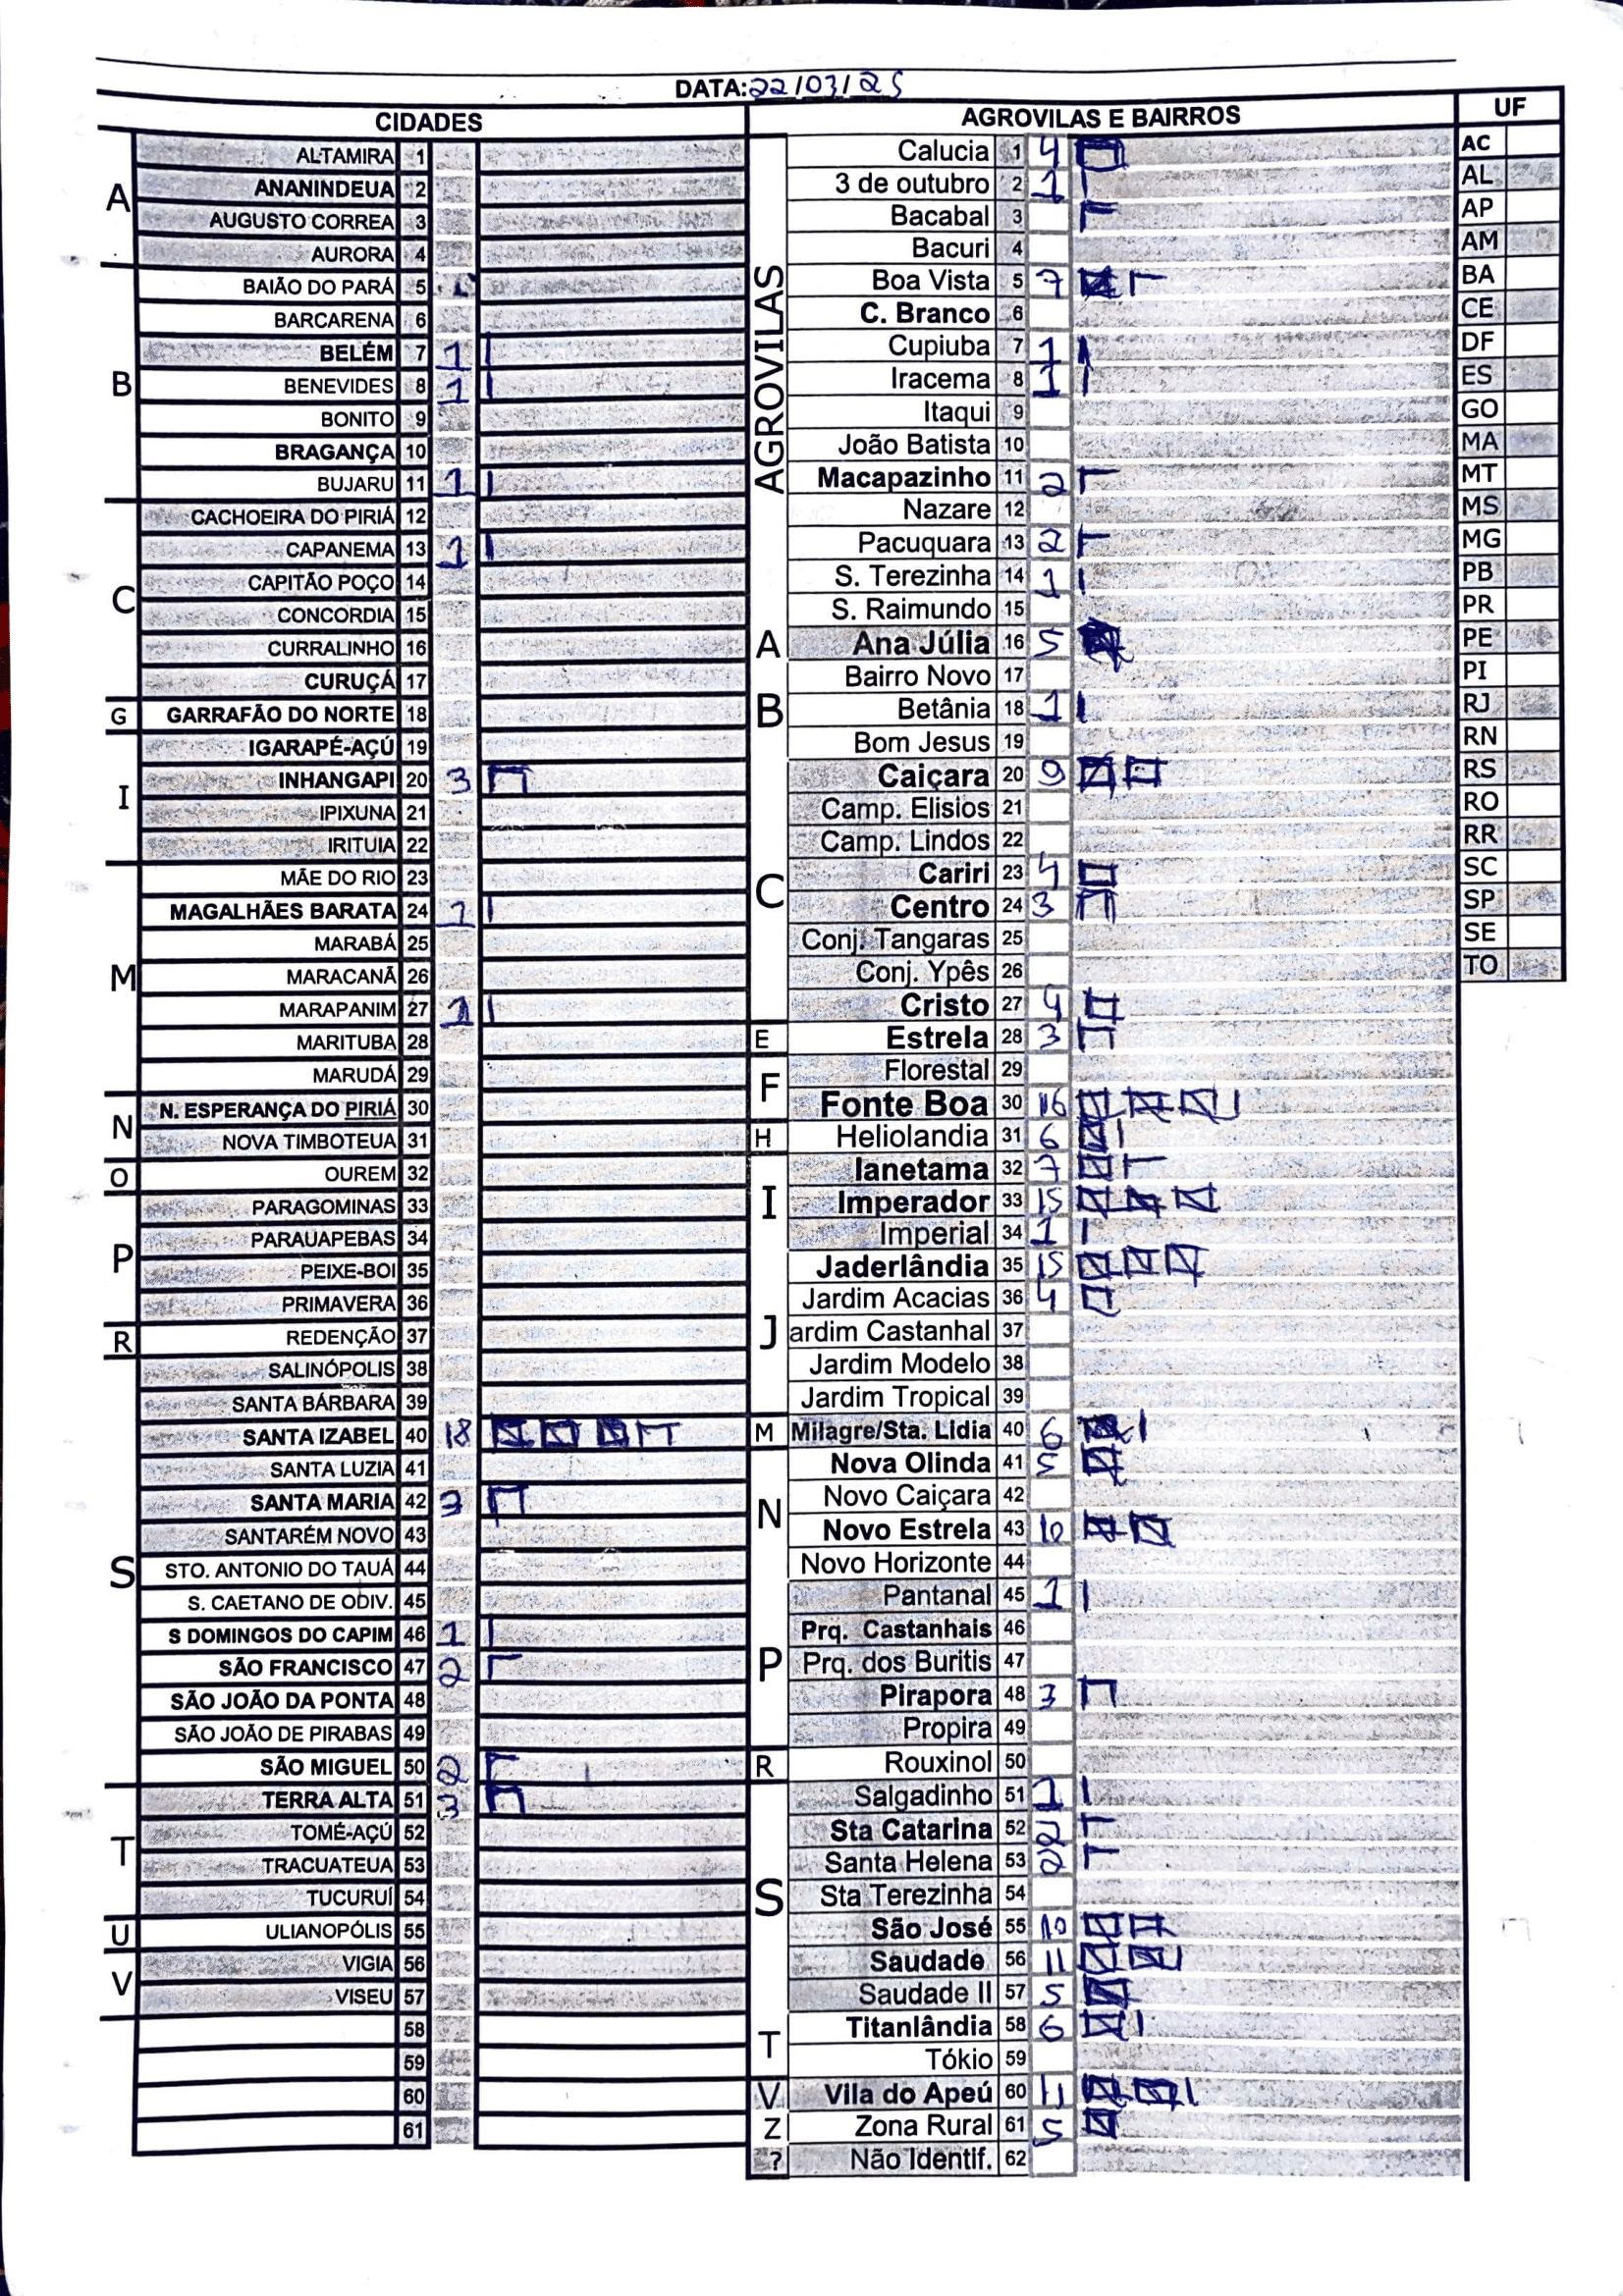 DATA:22/03/25
CIDADES
A
ALTAMIRA 1
ANANINDEUA 2
AUGUSTO CORREA 3
AURORA 4
B
BAIÃO DO PARÁ 5
BARCARENA 6
BELÉM 7 1
BENEVIDES 8 1
BONITO 9
BRAGANÇA 10
BUJARU 11 1
C
CACHOEIRA DO PIRIÁ 12
CAPANEMA 13 1
CAPITÃO POÇO 14
CONCORDIA 15
CURRALINHO 16
CURUÇÁ 17
G
GARRAFÃO DO NORTE 18
I
IGARAPÉ-AÇÚ 19
INHANGAPI 20 3
IPIXUNA 21
IRITUIA 22
M
MÃE DO RIO 23
MAGALHÃES BARATA 24 1
MARABÁ 25
MARACANÃ 26
MARAPANIM 27 1
MARITUBA 28
MARUDÁ 29
N
N. ESPERANÇA DO PIRIÁ 30
NOVA TIMBOTEUA 31
O
OUREM 32
P
PARAGOMINAS 33
PARAUAPEBAS 34
PEIXE-BOI 35
PRIMAVERA 36
R
REDENÇÃO 37
S
SALINÓPOLIS 38
SANTA BÁRBARA 39
SANTA IZABEL 40 18
SANTA LUZIA 41
SANTA MARIA 42 3
SANTARÉM NOVO 43
STO. ANTONIO DO TAUÁ 44
S. CAETANO DE ODIV. 45
S DOMINGOS DO CAPIM 46 1
SÃO FRANCISCO 47 2
SÃO JOÃO DA PONTA 48
SÃO JOÃO DE PIRABAS 49
SÃO MIGUEL 50 2
T
TERRA ALTA 51 3
TOMÉ-AÇÚ 52
TRACUATEUA 53
TUCURUÍ 54
U
ULIANOPÓLIS 55
V
VIGIA 56
VISEU 57
58
59
60
61
AGROVILAS E BAIRROS
AGROVILAS
Calucia 1 4
3 de outubro 2 1
Bacabal 3
Bacuri 4
Boa Vista 5 7
C. Branco 6
Cupiuba 7 1
Iracema 8 1
Itaqui 9
João Batista 10
Macapazinho 11 2
Nazare 12
Pacuquara 13 2
S. Terezinha 14 1
S. Raimundo 15
A
Ana Júlia 16 5
B
Bairro Novo 17
Betânia 18 1
Bom Jesus 19
C
Caiçara 20 9
Camp. Elisios 21
Camp. Lindos 22
Cariri 23 4
Centro 24 3
Conj. Tangaras 25
Conj. Ypês 26
Cristo 27 4
E
Estrela 28 3
F
Florestal 29
Fonte Boa 30 16
H
Heliolandia 31 6
I
Ianetama 32 7
Imperador 33 15
Imperial 34 1
J
Jaderlândia 35 15
Jardim Acacias 36 4
ardim Castanhal 37
Jardim Modelo 38
Jardim Tropical 39
M
Milagre/Sta. Lidia 40 6
N
Nova Olinda 41 5
Novo Caiçara 42
Novo Estrela 43 10
Novo Horizonte 44
P
Pantanal 45 1
Prq. Castanhais 46
Prq. dos Buritis 47
Pirapora 48 3
Propira 49
R
Rouxinol 50
S
Salgadinho 51 1
Sta Catarina 52 2
Santa Helena 53 2
Sta Terezinha 54
São José 55 10
Saudade 56 11
Saudade II 57 5
T
Titanlândia 58 6
Tókio 59
V
Vila do Apeú 60 11
Z
Zona Rural 61 5
?
Não Identif. 62
UF
AC
AL
AP
AM
BA
CE
DF
ES
GO
MA
MT
MS
MG
PB
PR
PE
PI
RJ
RN
RS
RO
RR
SC
SP
SE
TO